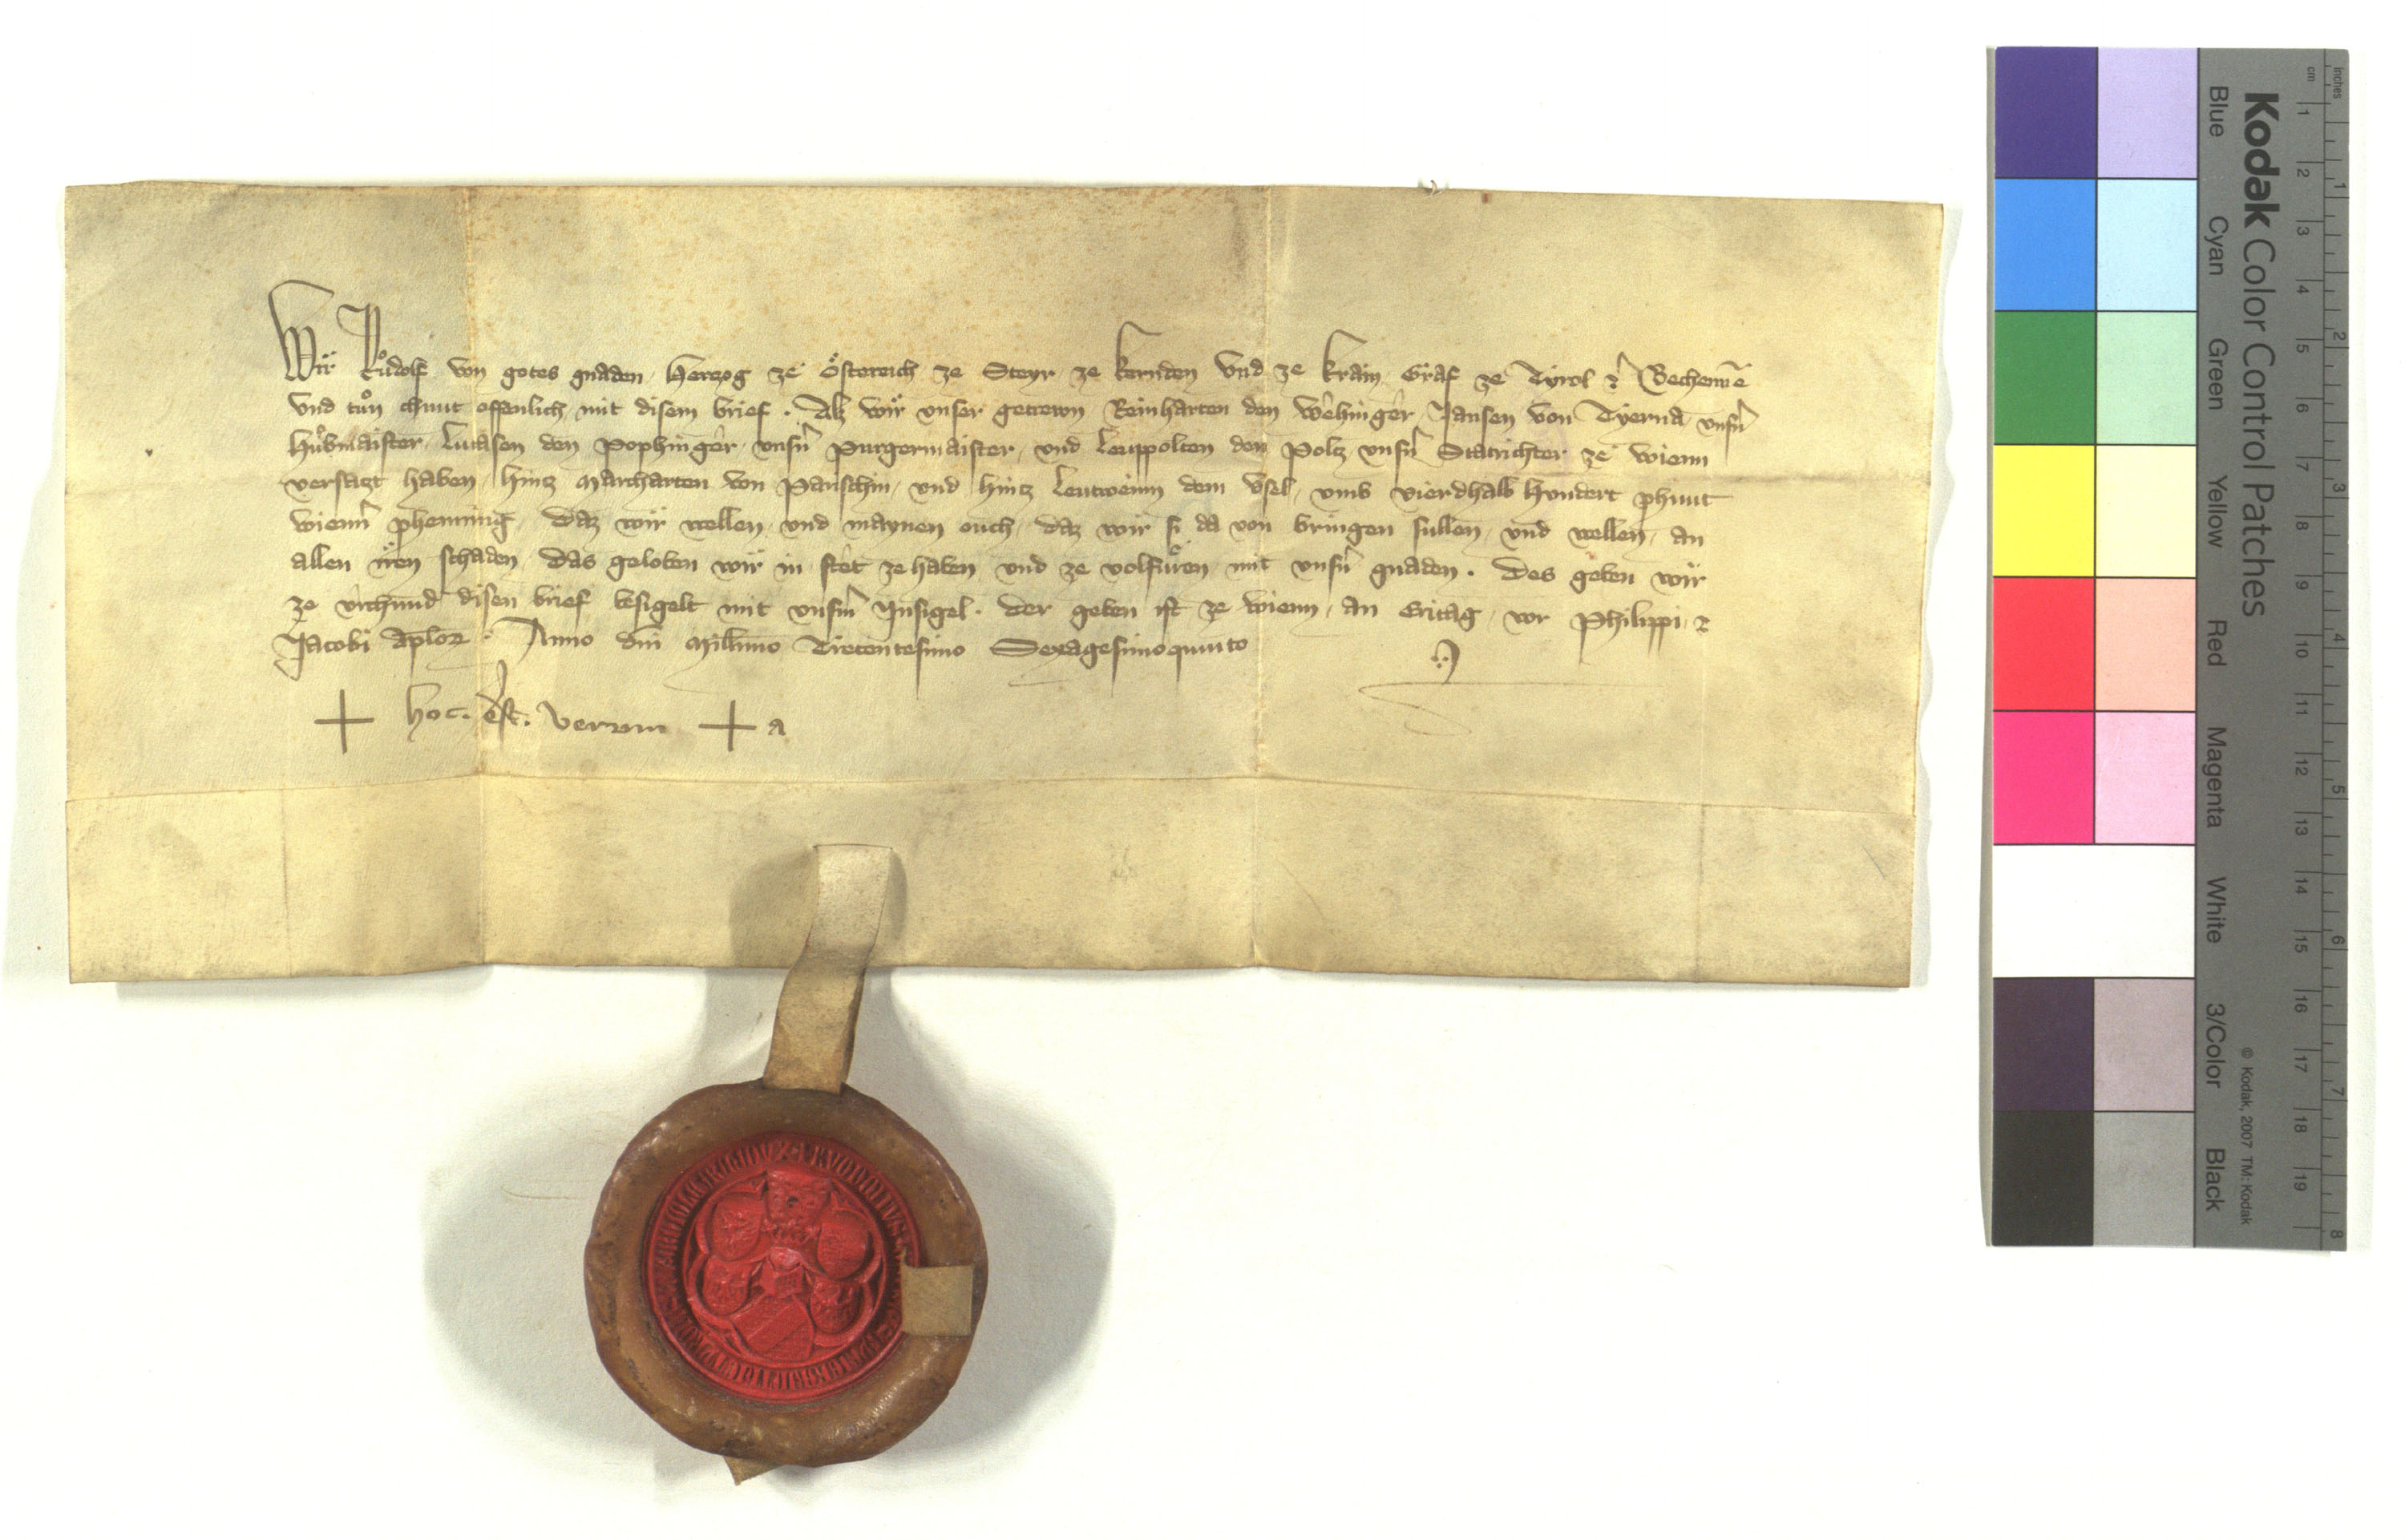 Wir Růdolf von gotes gnaden Herczog ze Österreich ze Steyr ze kernden vnd ze krain Graf ze Tyrol ꝛc Bechenn̄e
vnd tůn chunt offenlich mit disem brief . Alz wir vnser getrewn Reinharten den Wehinger Jansen von Tyerna vnsn̄
Hůbmaister Lucasen den Pophinger vnsn̄ Purgermaister vnd Leuppolten den Polz vnsn̄ Statrichter ze wienn
versazt haben hinz Marcharten von Pauschin vnd hinz Leutweinn dem Vsel vmb vierdhalb hundert phunt
wienn̄ phenning daz wir wellen vnd maynen ouch daz wir si da von bringen sullen vnd wellen an
allen iren schaden das geloben wir in stet ze haben vnd ze volfůren mit vnsn̄ gnaden . Des geben wir
ze vrchund disen brief besigelt mit vnsm̄ Insigel . Der geben ist ze wienn an Eritag vor Philippi ꝛ
Jacobi Aploꝝ . Anno dn̄i Millm̄o Trecentesimo Sexagesimoquinto
+ hoc . est . verum + a
Kodak Color Control Patches
Blue Cyan Green Yellow Red Magenta White 3/Color Black
© Kodak, 2007 TM: Kodak
inches 1 2 3 4 5 6 7 8
cm 1 2 3 4 5 6 7 8 9 10 11 12 13 14 15 16 17 18 19